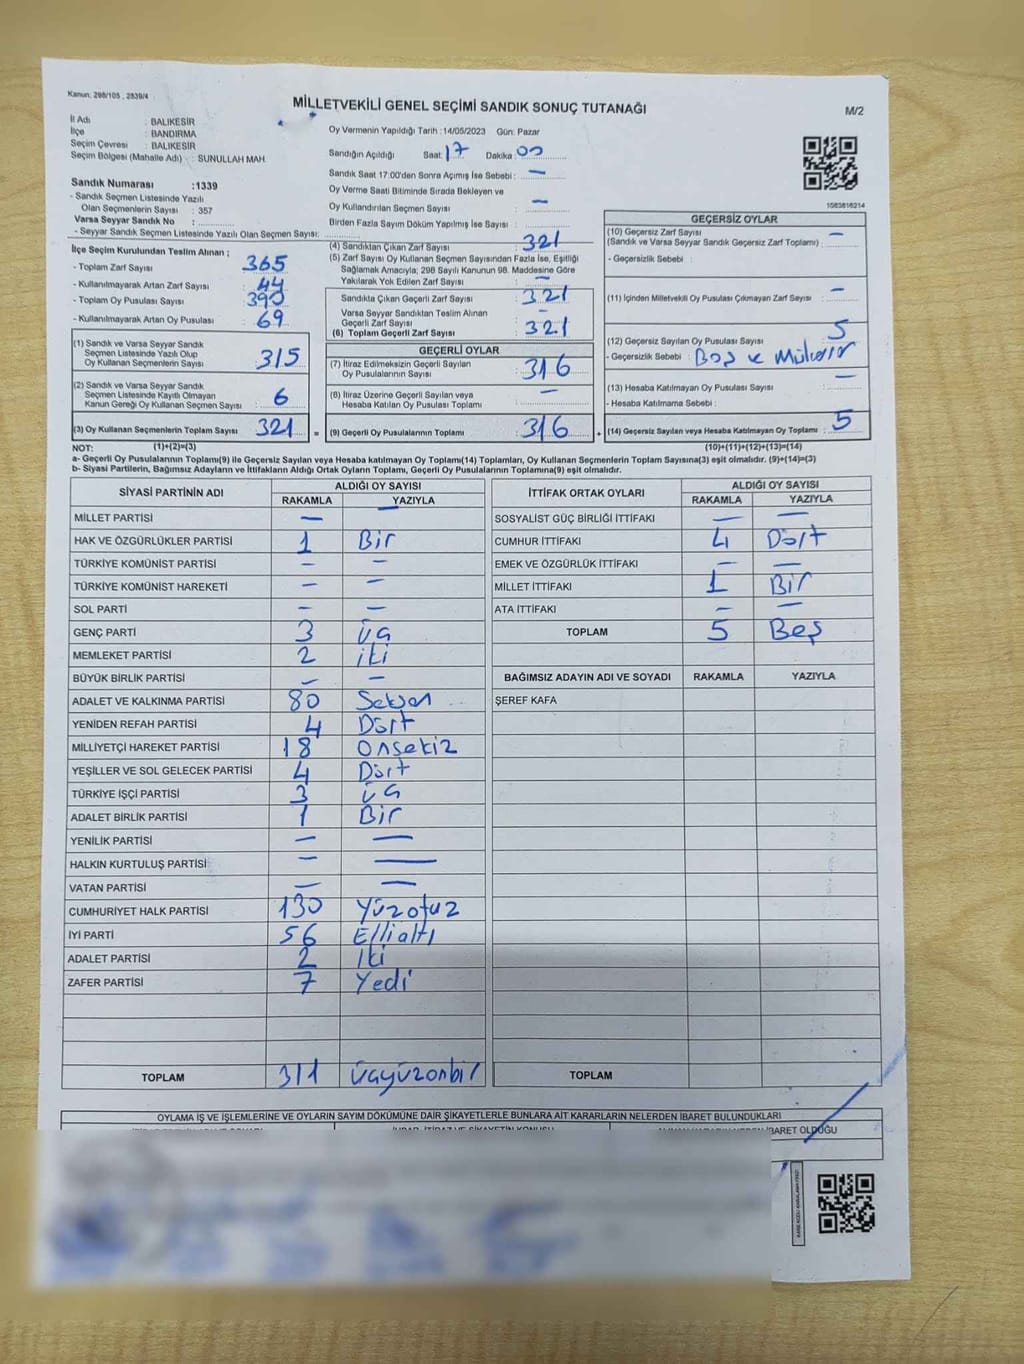 Kanun: 298/105 , 2839/4
MİLLETVEKİLİ GENEL SEÇİMİ SANDIK SONUÇ TUTANAĞI
M/2
İl Adı : BALIKESİR
İlçe : BANDIRMA
Seçim Çevresi : BALIKESİR
Seçim Bölgesi (Mahalle Adı) : SUNULLAH MAH.
Oy Vermenin Yapıldığı Tarih : 14/05/2023 Gün: Pazar
Sandığın Açıldığı Saat: 17 Dakika: 00
Sandık Saat 17:00'den Sonra Açımış İse Sebebi : —
Oy Verme Saati Bitiminde Sırada Bekleyen ve
Oy Kullandırılan Seçmen Sayısı : —
Birden Fazla Sayım Döküm Yapılmış İse Sayısı :
Sandık Numarası :1339
- Sandık Seçmen Listesinde Yazılı
Olan Seçmenlerin Sayısı : 357
Varsa Seyyar Sandık No :
- Seyyar Sandık Seçmen Listesinde Yazılı Olan Seçmen Sayısı:
İlçe Seçim Kurulundan Teslim Alınan ;
- Toplam Zarf Sayısı : 365
- Kullanılmayarak Artan Zarf Sayısı : 44
- Toplam Oy Pusulası Sayısı : 390
- Kullanılmayarak Artan Oy Pusulası : 69
(1) Sandık ve Varsa Seyyar Sandık
Seçmen Listesinde Yazılı Olup
Oy Kullanan Seçmenlerin Sayısı : 315
(2) Sandık ve Varsa Seyyar Sandık
Seçmen Listesinde Kayıtlı Olmayan
Kanun Gereği Oy Kullanan Seçmen Sayısı : 6
(3) Oy Kullanan Seçmenlerin Toplam Sayısı : 321 =
(4) Sandıktan Çıkan Zarf Sayısı : 321
(5) Zarf Sayısı Oy Kullanan Seçmen Sayısından Fazla İse, Eşitliği
Sağlamak Amacıyla; 298 Sayılı Kanunun 98. Maddesine Göre
Yakılarak Yok Edilen Zarf Sayısı : —
Sandıkta Çıkan Geçerli Zarf Sayısı : 321
Varsa Seyyar Sandıktan Teslim Alınan
Geçerli Zarf Sayısı : —
(6) Toplam Geçerli Zarf Sayısı : 321
GEÇERLİ OYLAR
(7) İtiraz Edilmeksizin Geçerli Sayılan
Oy Pusulalarının Sayısı : 316
(8) İtiraz Üzerine Geçerli Sayılan veya
Hesaba Katılan Oy Pusulası Toplamı : —
(9) Geçerli Oy Pusulalarının Toplamı : 316 +
1083816214
GEÇERSİZ OYLAR
(10) Geçersiz Zarf Sayısı
(Sandık ve Varsa Seyyar Sandık Geçersiz Zarf Toplamı) : —
- Geçersizlik Sebebi :
(11) İçinden Milletvekili Oy Pusulası Çıkmayan Zarf Sayısı : —
(12) Geçersiz Sayılan Oy Pusulası Sayısı : 5
- Geçersizlik Sebebi : Boş ve
(13) Hesaba Katılmayan Oy Pusulası Sayısı : —
- Hesaba Katılmama Sebebi :
(14) Geçersiz Sayılan veya Hesaba Katılmayan Oy Toplamı : 5
NOT: (1)+(2)=(3) (10)+(11)+(12)+(13)=(14)
a- Geçerli Oy Pusulalarının Toplamı(9) ile Geçersiz Sayılan veya Hesaba katılmayan Oy Toplamı(14) Toplamları, Oy Kullanan Seçmenlerin Toplam Sayısına(3) eşit olmalıdır. (9)+(14)=(3)
b- Siyasi Partilerin, Bağımsız Adayların ve İttifakların Aldığı Ortak Oyların Toplamı, Geçerli Oy Pusulalarının Toplamına(9) eşit olmalıdır.
SİYASİ PARTİNİN ADI ALDIĞI OY SAYISI
RAKAMLA YAZIYLA
MİLLET PARTİSİ — —
HAK VE ÖZGÜRLÜKLER PARTİSİ 1 Bir
TÜRKİYE KOMÜNİST PARTİSİ — —
TÜRKİYE KOMÜNİST HAREKETİ — —
SOL PARTİ — —
GENÇ PARTİ 3 üç
MEMLEKET PARTİSİ 2 iki
BÜYÜK BİRLİK PARTİSİ — —
ADALET VE KALKINMA PARTİSİ 80 Seksen
YENİDEN REFAH PARTİSİ 4 Dört
MİLLİYETÇİ HAREKET PARTİSİ 18 Onsekiz
YEŞİLLER VE SOL GELECEK PARTİSİ 4 Dört
TÜRKİYE İŞÇİ PARTİSİ 3 üç
ADALET BİRLİK PARTİSİ 1 Bir
YENİLİK PARTİSİ — —
HALKIN KURTULUŞ PARTİSİ — —
VATAN PARTİSİ — —
CUMHURİYET HALK PARTİSİ 130 Yüzotuz
İYİ PARTİ 56 Ellialtı
ADALET PARTİSİ 2 İki
ZAFER PARTİSİ 7 Yedi
TOPLAM 311 üçyüzonbir
İTTİFAK ORTAK OYLARI ALDIĞI OY SAYISI
RAKAMLA YAZIYLA
SOSYALİST GÜÇ BİRLİĞİ İTTİFAKI — —
CUMHUR İTTİFAKI 4 Dört
EMEK VE ÖZGÜRLÜK İTTİFAKI — —
MİLLET İTTİFAKI 1 Bir
ATA İTTİFAKI — —
TOPLAM 5 Beş
BAĞIMSIZ ADAYIN ADI VE SOYADI RAKAMLA YAZIYLA
ŞEREF KAFA
TOPLAM
OYLAMA İŞ VE İŞLEMLERİNE VE OYLARIN SAYIM DÖKÜMÜNE DAİR ŞİKAYETLERLE BUNLARA AİT KARARLARIN NELERDEN İBARET BULUNDUKLARI
İBARET OLDUĞU